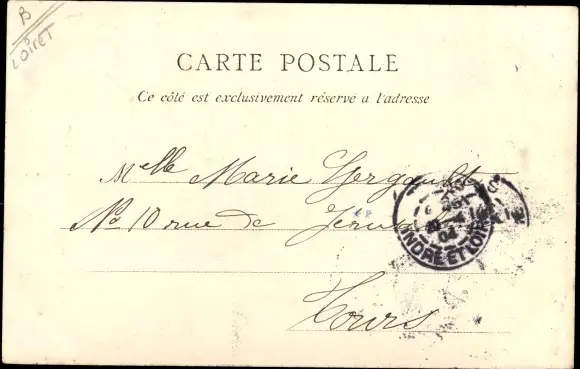 B
LOIRET
CARTE POSTALE
Ce côté est exclusivement réservé a l'adresse
Melle Marie
No 10 rue de
Tours
TOURS
04
INDRE ET LOIRE